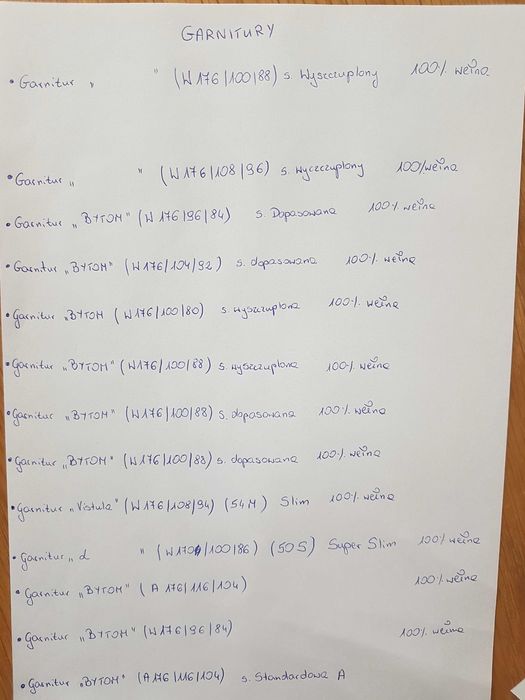 GARNITURY
• Garnitur „ " (W 176/100/88) s. Wyszczuplony 100% wełna
• Garnitur „ " (W 176/108/96) s. wyczczuplony 100/wełna
• Garnitur „BYTOM" (W 176/96/84) s. Dopasowana 100% wełna
• Garnitur „BYTOM" (W176/104/92) s. dopasowana 100%. wełna
• Garnitur „BYTOM (W176/100/80) s. wyszczuplona 100%. wełna
• Garnitur „BYTOM" (W176/100/88) s. wyszczuplona 100%. wełna
• Garnitur „BYTOM" (W176/100/88) s. dopasowana 100%. wełna
• Garnitur „BYTOM" (W176/100/88) s. dopasowana 100%. wełna
• Garnitur „Vistula" (W176/108/94) (54M) Slim 100%. wełna
• Garnitur „d " (W170/100/86) (50S) Super Slim 100% wełna
• Garnitur „BYTOM" (A 176/116/104) 100% wełna
• Garnitur „BYTOM" (W176/96/84) 100%. wełna
• Garnitur „BYTOM" (A176/116/104) s. Standardowa A